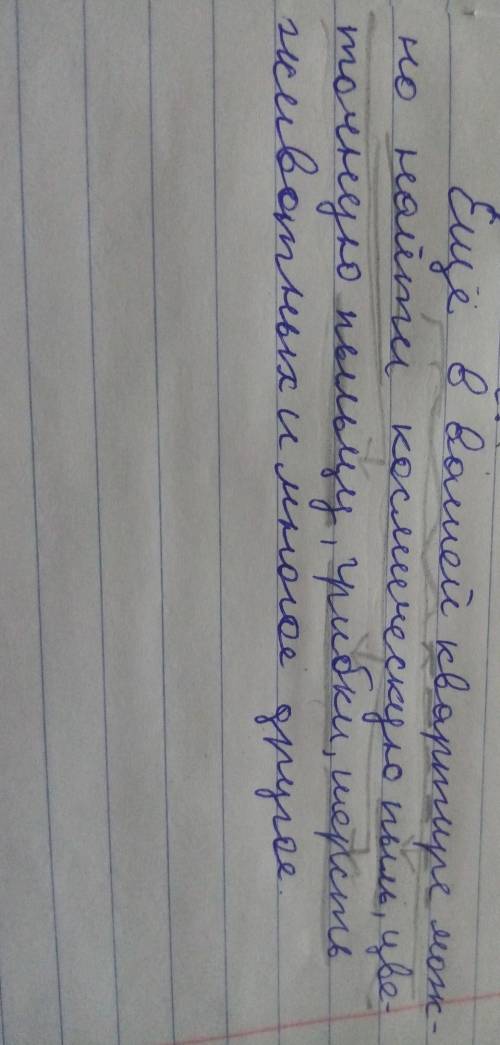 Ещё в вашей квартире мож-
но найти космическую пыль, цве-
точную пыльцу, грибки, шерсть
животных и многое другое.